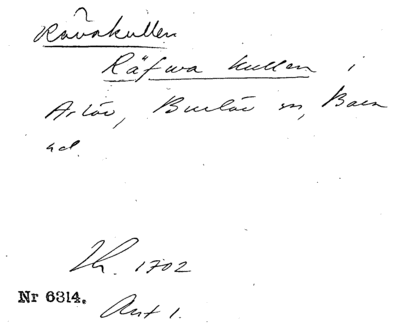 Rävakullen
Räfwa kullen i
Arlöv, Burlöv sn, Bara
hd.
Lh. 1702
Nr 6314.
Ant 1.